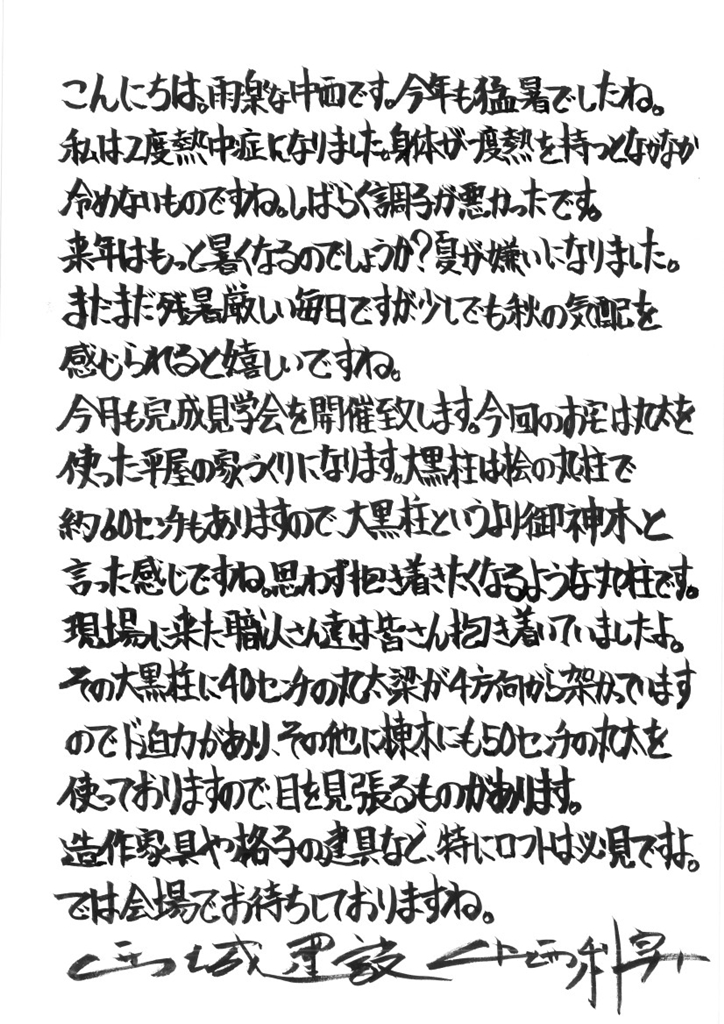 こんにちは。雨楽な中西です。今年も猛暑でしたね。
私は2度熱中症になりました。身体が一度熱を持つとなかなか
冷めないものですね。しばらく調子が悪かったです。
来年はもっと暑くなるのでしょうか?夏が嫌いになりました。
まだまだ残暑厳しい毎日ですが少しでも秋の気配を
感じられると嬉しいですね。
今月も完成見学会を開催致します。今回のお宅は丸太を
使った平屋の家づくりになります。大黒柱は桧の丸柱で
約60センチもありますので大黒柱というより御神木と
言った感じですね。思わず抱き着きたくなるような丸柱です。
現場に来た職人さん達は皆さん抱き着いていましたよ。
その大黒柱に40センチの丸太梁が4方向から架かっています
のでド迫力があり、その他に棟木にも50センチの丸太を
使っておりますので、目を見張るものがあります。
造作家具や格子の建具など、特にロフトは必見ですよ。
では会場でお待ちしておりますね。
城建設 中西